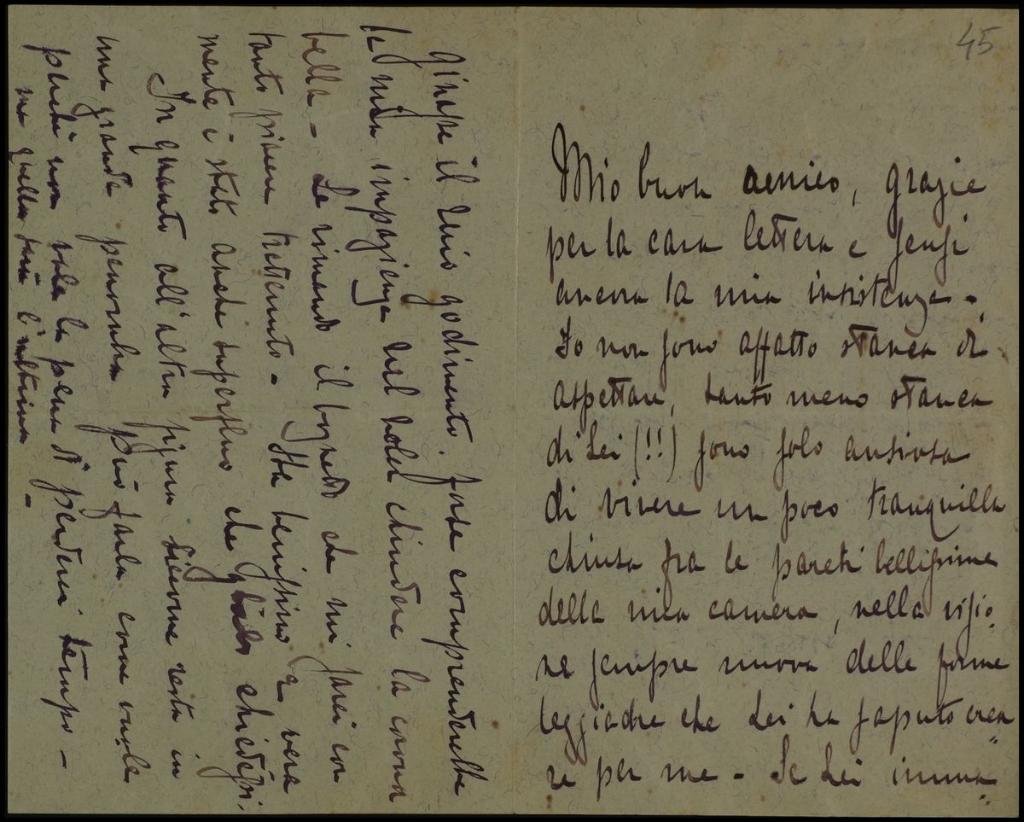 45
Mio buon amico, grazie
per la cara lettera e scusi
ancora la mia insistenza -
Io non sono affatto stanca di
aspettare, tanto meno stanca
di Lei (!!) sono solo ansiosa
di vivere un poco tranquilla
chiusa fra le pareti bellissime
della mia camera, nella visio-
ne sempre nuova delle forme
leggiadre che Lei ha saputo crea
re per me - Se Lei imma
ginasse il mio godimento, forse comprenderebbe
la mia impazienza nel voler chiudere la corona
bella - Le rimando il bozzetto che mi sarei con
tanto piacere trattenuto - Sta benissimo e vera
mente è stato anche superfluo che chiedessi.
In quanto all'altra figura siccome resta in
una grande penombra può farla come vuole
perchè non vale la pena di perderci tempo -
ma quella sarà l'ultima -